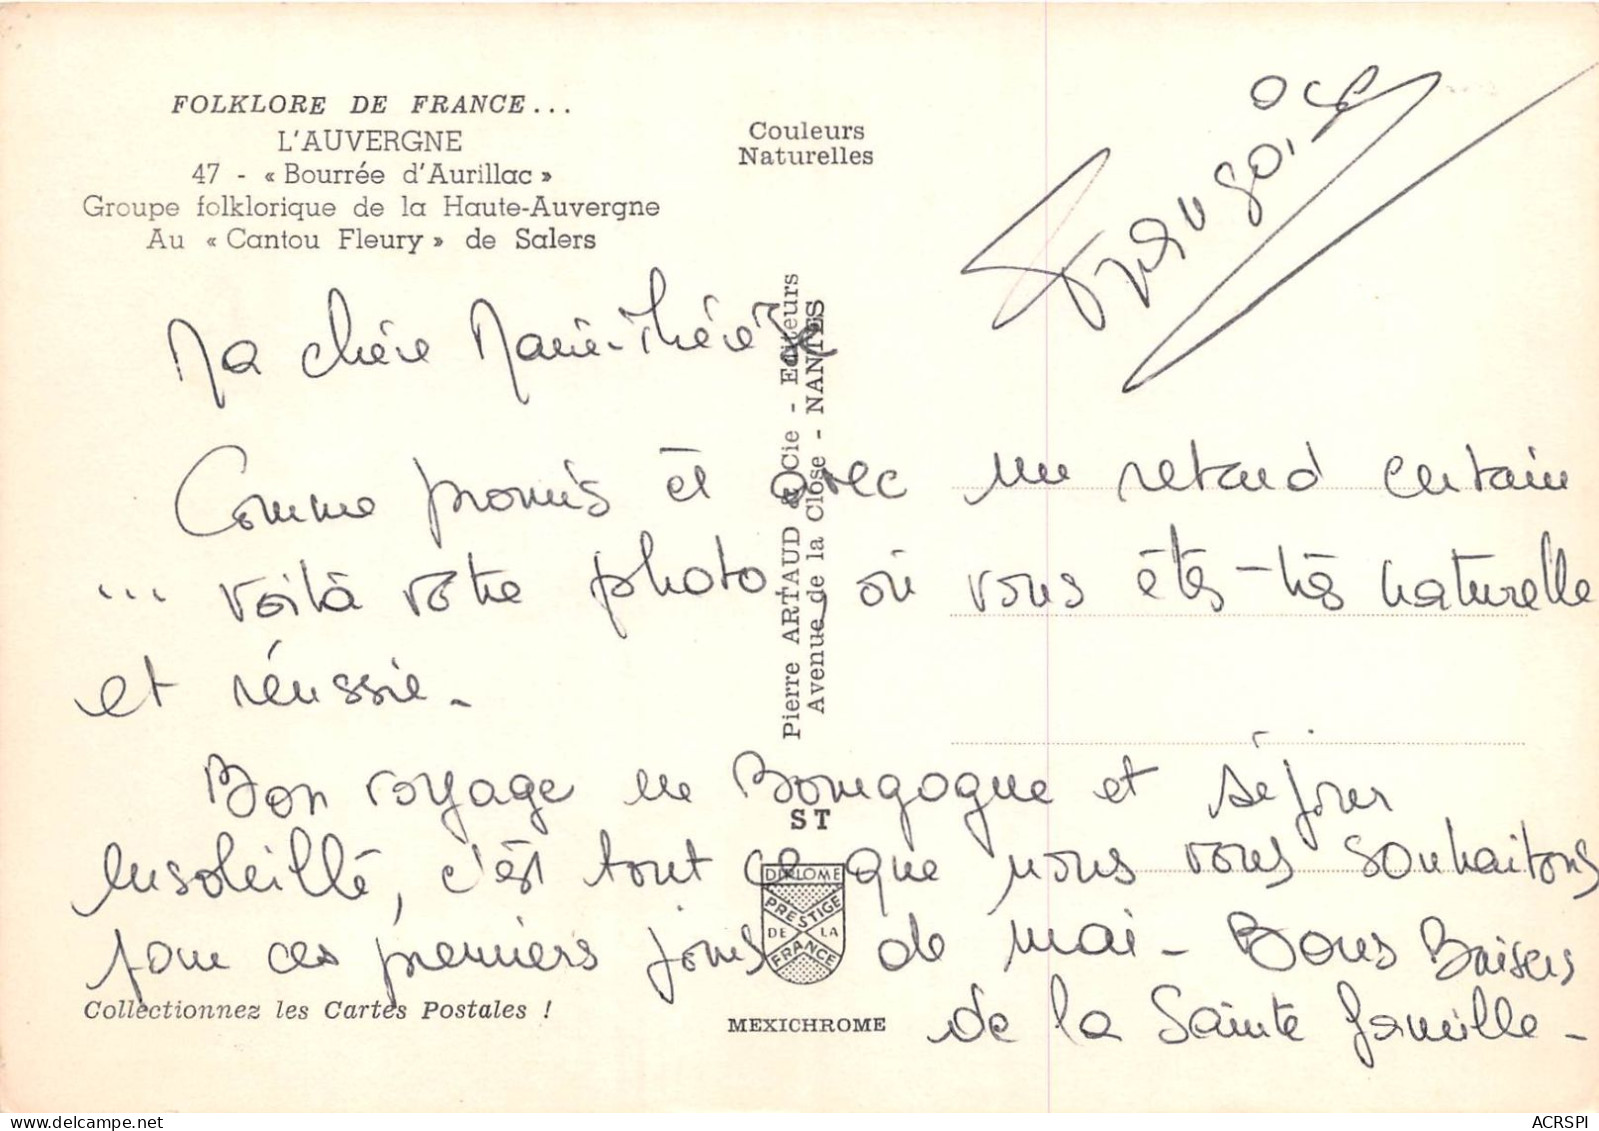 FOLKLORE DE FRANCE...
L'AUVERGNE
47 - « Bourrée d'Aurillac »
Groupe folklorique de la Haute-Auvergne
Au « Cantou Fleury » de Salers
Couleurs
Naturelles
Françoise
Pierre ARTAUD & Cie - Editeurs
Avenue de la Close - NANTES
Ma chère Marie-Thérèse
Comme promis et avec un retard certain
... voilà votre photo, où vous êtes très naturelle
et réussie.
Bon voyage en Bourgogne et séjour
ensoleillé, c'est tout ce que nous vous souhaitons
pour ces premiers jours de mai - Bons Baisers
de la Sainte famille -
ST
DIPLOME
PRESTIGE
DE LA
FRANCE
Collectionnez les Cartes Postales !
MEXICHROME
ACRSPI